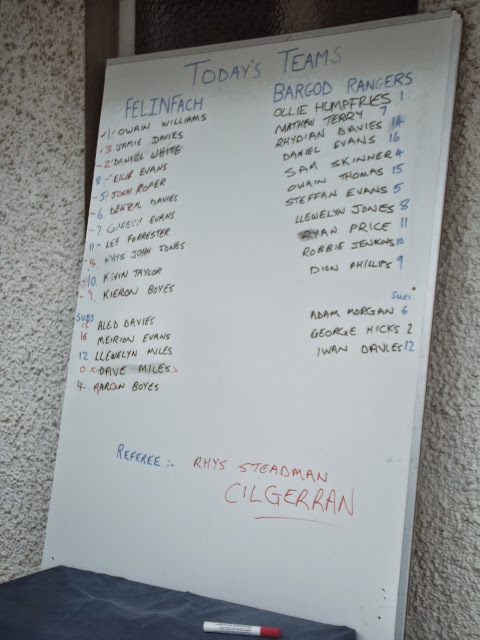 TODAY'S TEAMS
FELINFACH
1 OWAIN WILLIAMS
3 JAMIE DAVIES
2 DANIEL WHITE
8 EILIR EVANS
5 JOSH ROPER
6 DENZIL DAVIES
7 GARETH EVANS
11 LEE FORRESTER
4 RHYS JOHN JONES
10 KEVIN TAYLOR
9 KIERON BOYES
SUBS
15 ALED DAVIES
16 MEIRION EVANS
12 LLEWELYN MILES
0 DAVE MILES
4 AARON BOYES
BARGOD RANGERS
OLLIE HUMPFRIES 1
MATHEW TERRY 7
RHYDIAN DAVIES 14
DANIEL EVANS 16
SAM SKINNER 4
OWAIN THOMAS 15
STEFFAN EVANS 5
LLEWELYN JONES 8
RYAN PRICE 11
ROBBIE JENKINS 10
DION PHILLIPS 9
SUBS
ADAM MORGAN 6
GEORGE HICKS 2
IWAN DAVIES 12
REFEREE :- RHYS STEADMAN
CILGERRAN